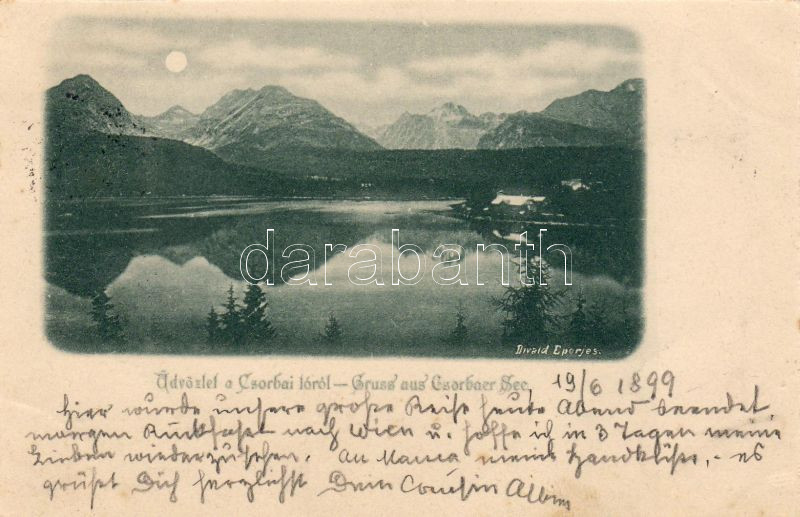 darabanth
Divald Eperjes.
Üdvözlet a Csorbai tóról — Gruss aus Csorbaer See,
19/6 1899
Hier wurde unsere große Reise heute Abend beendet
morgen Rückfahrt nach Wien u. hoffe ich in 3 Tagen meine
Lieben wiederzusehen. An Mama meine Handküße, - es
grüßt Dich herzlichst Dein Cousin Albin